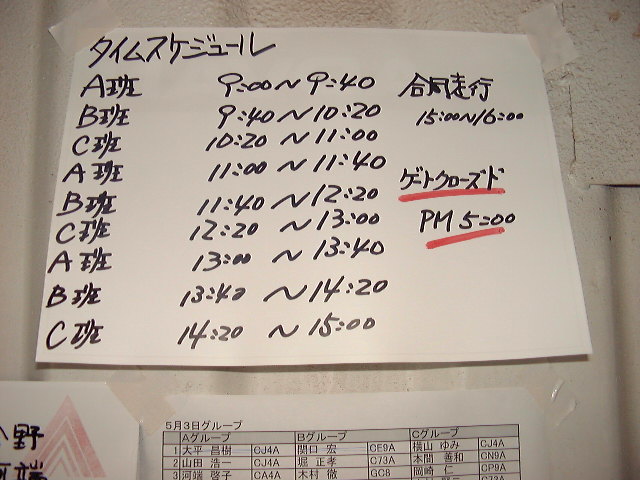 タイムスケジュール
A班 9:00〜9:40
B班 9:40〜10:20
C班 10:20〜11:00
A班 11:00〜11:40
B班 11:40〜12:20
C班 12:20〜13:00
A班 13:00〜13:40
B班 13:40〜14:20
C班 14:20〜15:00
合同走行
15:00〜16:00
ゲートクローズド
PM 5:00
野
端
5月3日グループ
Aグループ Bグループ Cグループ
1 大平 昌樹 CJ4A 関口 宏 CE9A 横山 ゆみ CJ4A
2 山田 浩一 CJ4A 堀 正孝 C73A 本間 善和 CN9A
3 河端 啓子 CA4A 木村 徹 GC8 岡崎 仁 CP9A
C73A